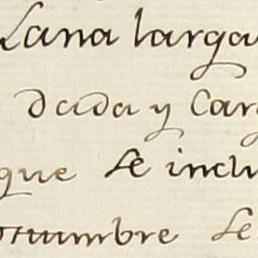 Lana larga
dada y Car
que se inclu
ostumbre se